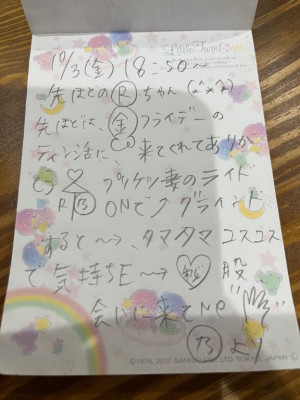 Little Twin Stars
10/3(金)18:50〜
先ほどのⓇちゃん(^x^)
先ほどは、㊎フライデーの
ティン活に、来てくれてありが
とう プリケツ妻のライド
ONでグラインド
すると〜→、タマタマコスコス
で気持ちE〜→ 股
会いに来てNe
より
©'76, 2017 SANRIO CO., LTD. TOKYO, JAPAN